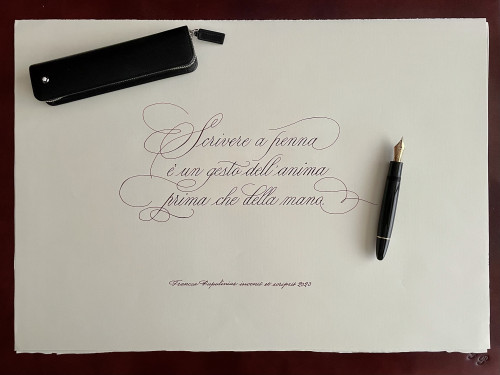 Scrivere a penna
è un gesto dell'anima
prima che della mano.
invenit et scripsit 2020